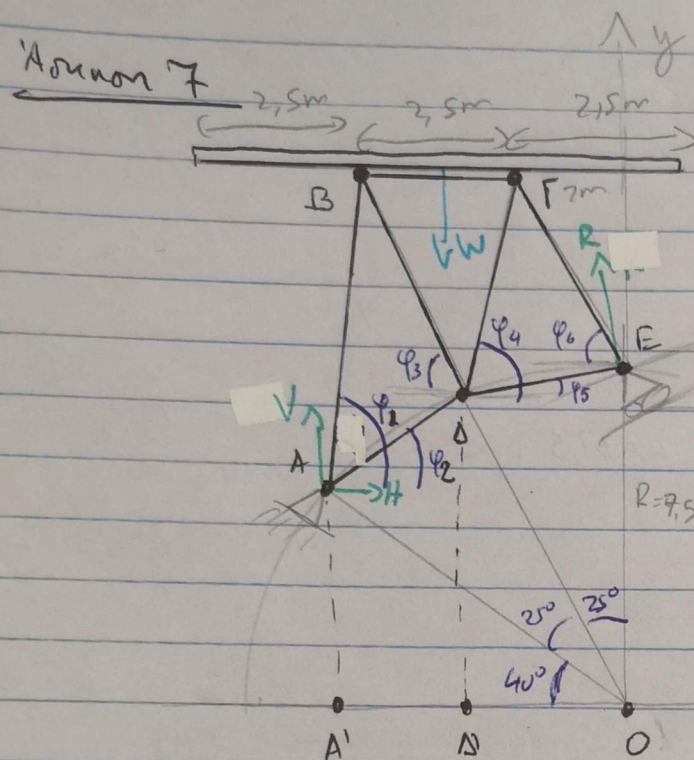 Άσκηση 7
y
2,5m 2,5m 2,5m
B Γ 2m
W
R
φ4 φ6 E
φ3 φ5
V φ1 Δ
A φ2
H
R=7,5
25° 25°
40°
A' Δ' O